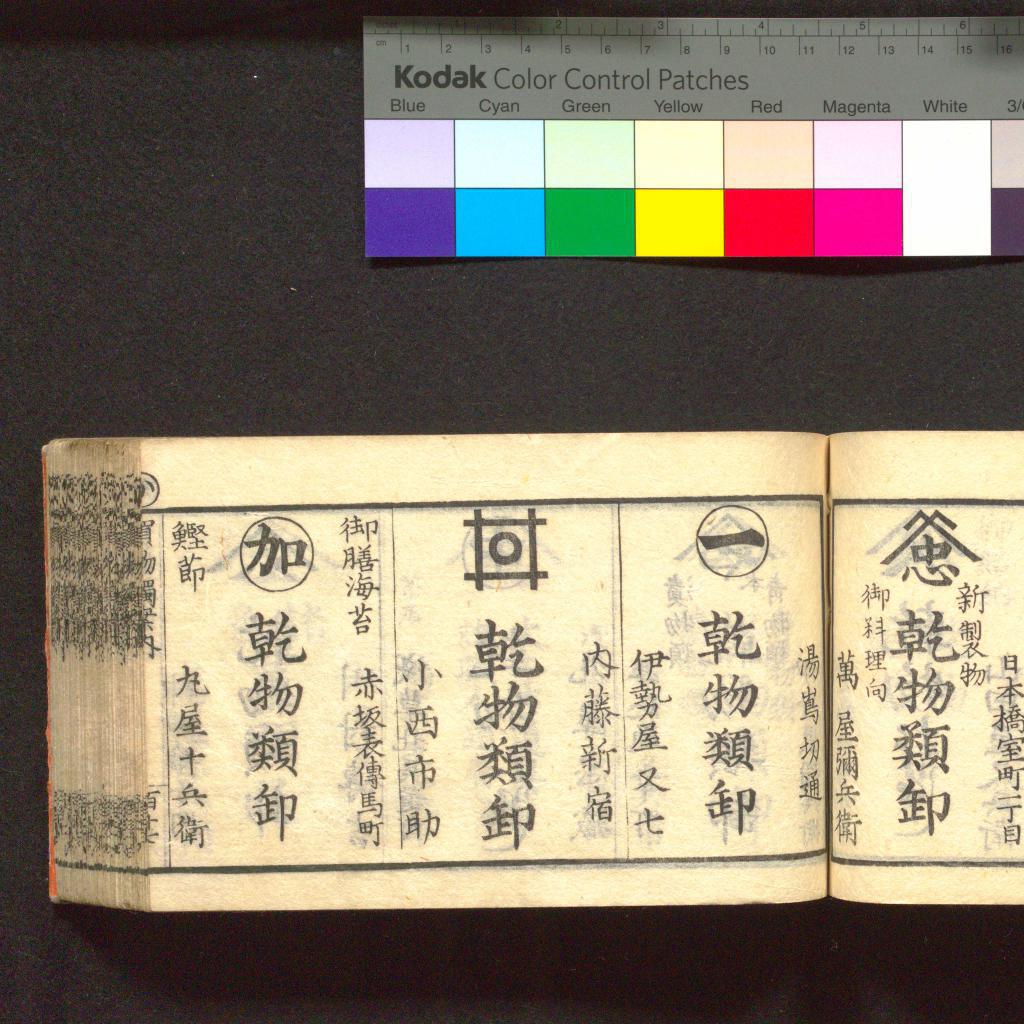 cm 1 2 3 4 5 6 7 8 9 10 11 12 13 14 15 16
1 2 3 4 5 6
Kodak Color Control Patches
Blue Cyan Green Yellow Red Magenta White
日本橋室町二丁目
新製物
忠 乾物類卸
御料理向
萬屋彌兵衛
湯嶌切通
一 乾物類卸
伊勢屋又七
内藤新宿
乾物類卸
小西市助
御膳海苔
赤坂表傳馬町
加 乾物類卸
鰹節
九屋十兵衛
買物獨案内